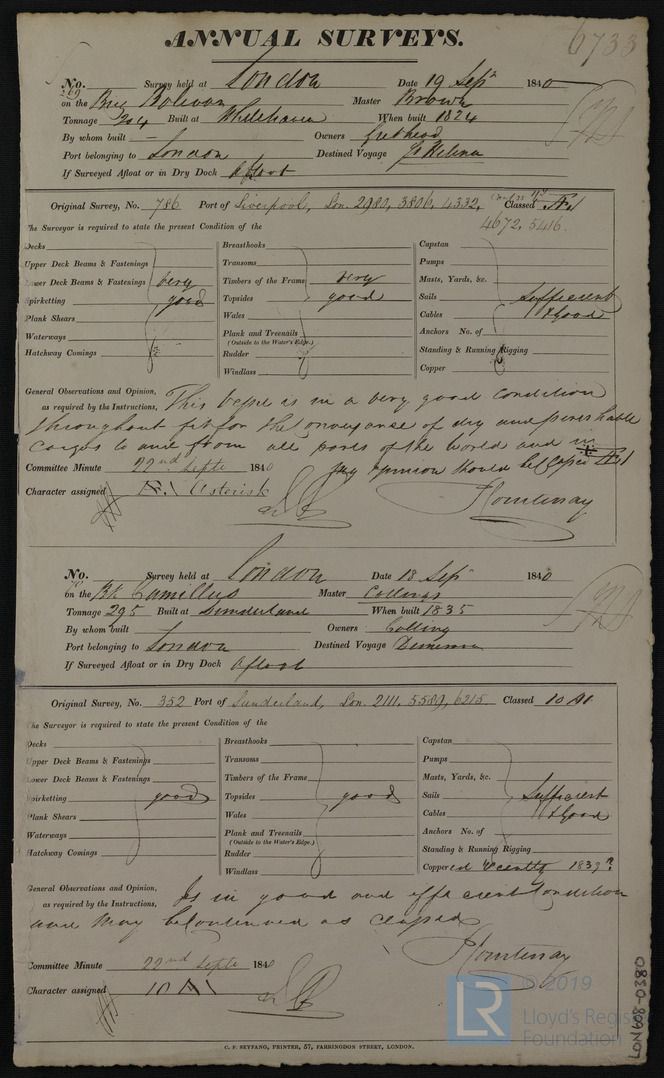 ANNUAL SURVEYS.
6733
No. 369 Survey held at London Date 19 Sepr 1840
on the Brig Bolivar Master Brown
Tonnage 304 Built at Whitehaven When built 1824
By whom built — Owners
Port belonging to London Destined Voyage St Helena
If Surveyed Afloat or in Dry Dock Afloat
Original Survey, No. 786 Port of Liverpool, Lon. 2980, 3806, 4332, Classed Æ1
4672, 5416.
The Surveyor is required to state the present Condition of the
Decks
Upper Deck Beams & Fastenings
Lower Deck Beams & Fastenings very
Spirketting good
Plank Shears
Waterways
Hatchway Comings
Breasthooks
Transoms
Timbers of the Frame very
Topsides good
Wales
Plank and Treenails
(Outside to the Water's Edge.)
Rudder
Windlass
Capstan
Pumps
Masts, Yards, &c.
Sails Sufficient
Cables & Good
Anchors No. of
Standing & Running Rigging
Copper
General Observations and Opinion, This vessel is in a very good condition
as required by the Instructions, throughout fit for the conveyance of dry and perishable
cargos to and from all parts of the world and in
Committee Minute 22nd Septr 1840 my opinion should be classed Æ1
Character assigned Æ1 Asterisk
No. 70 Survey held at London Date 18 Sepr 1840
on the Bk Camillus Master Collings
Tonnage 295 Built at Sunderland When built 1835
By whom built Owners Colling
Port belonging to London Destined Voyage
If Surveyed Afloat or in Dry Dock Afloat
Original Survey, No. 352 Port of Sunderland, Lon. 2111, 5580, 6215. Classed 10 A1
The Surveyor is required to state the present Condition of the
Decks
Upper Deck Beams & Fastenings
Lower Deck Beams & Fastenings
Spirketting good
Plank Shears
Waterways
Hatchway Comings
Breasthooks
Transoms
Timbers of the Frame
Topsides good
Wales
Plank and Treenails
(Outside to the Water's Edge.)
Rudder
Windlass
Capstan
Pumps
Masts, Yards, &c.
Sails Sufficient
Cables & Good
Anchors No. of
Standing & Running Rigging
Coppered 1839
General Observations and Opinion, Is in good and efficient condition
as required by the Instructions, and may be continued as classed
Committee Minute 22nd Septr 1840
Character assigned 10 A1
C. F. SEYFANG, PRINTER, 57, FARRINGDON STREET, LONDON.
LON 809-0830
LR © 2019
Lloyd's Register
Foundation